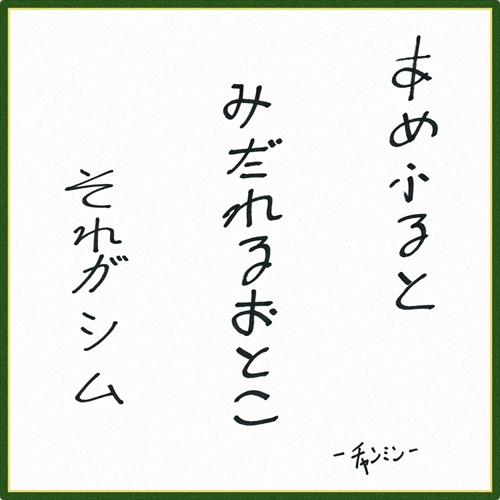 あめふると
みだれるおとこ
それがシム
-チャンミン-